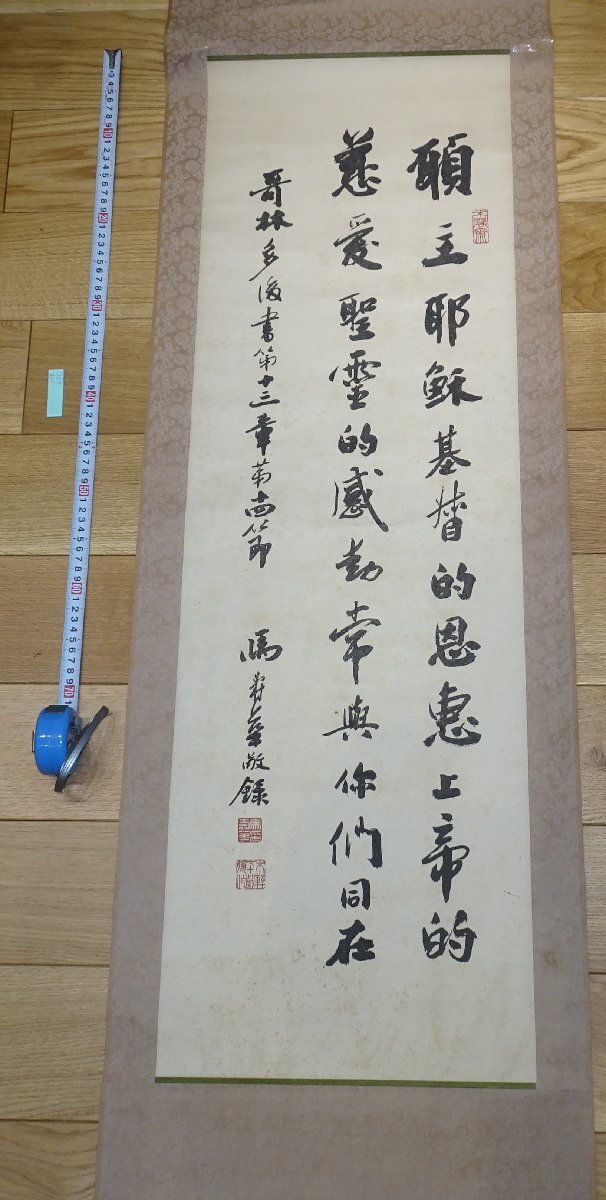 願主耶穌基督的恩惠上帝的
慈愛聖靈的感動常與你們同在
哥林多後書第十三章第十四節
馮壽
敬錄